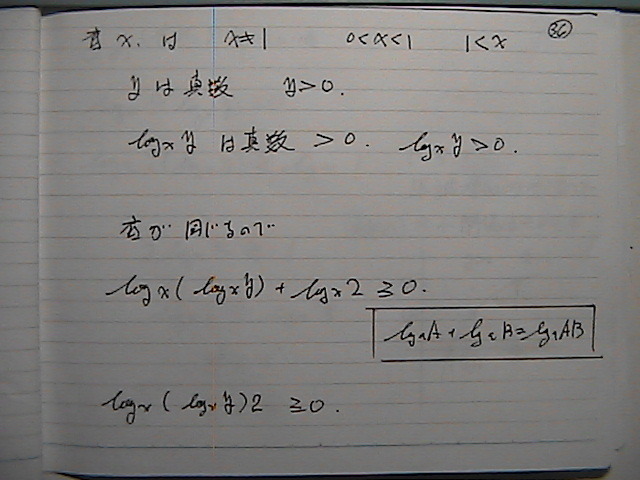 底 x は x≠1 0<x<1 1<x 36
y は真数 y>0.
log_x y は真数 >0. log_x y >0.
底が同じなので
log_x ( log_x y ) + log_x 2 ≥0.
log_a A + log_a B = log_a AB
log_x ( log_x y ) 2 ≥0.